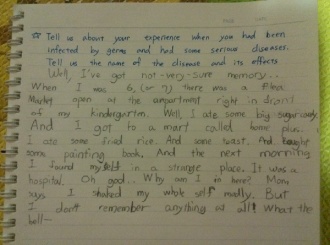 ☆ Tell us about your experience when you had been
infected by germs and had some serious diseases.
Tell us the name of the disease and its effects
Well, I've got not-very-sure memory...
When I was 6, (or 7) there was a flea
Market open at the appartment right in
of my kindergarten. Well, I ate some big sugar
And I got to a mart called home plus.
I ate some fried rice. And some toast. And bought
some painting book. And the next morning
I found myself in a strange place. It was a
hospital. Oh good.. Why am I in here? Mom
says I shaked my whole self madly. But
I don't remember anything at all! What the
hell~